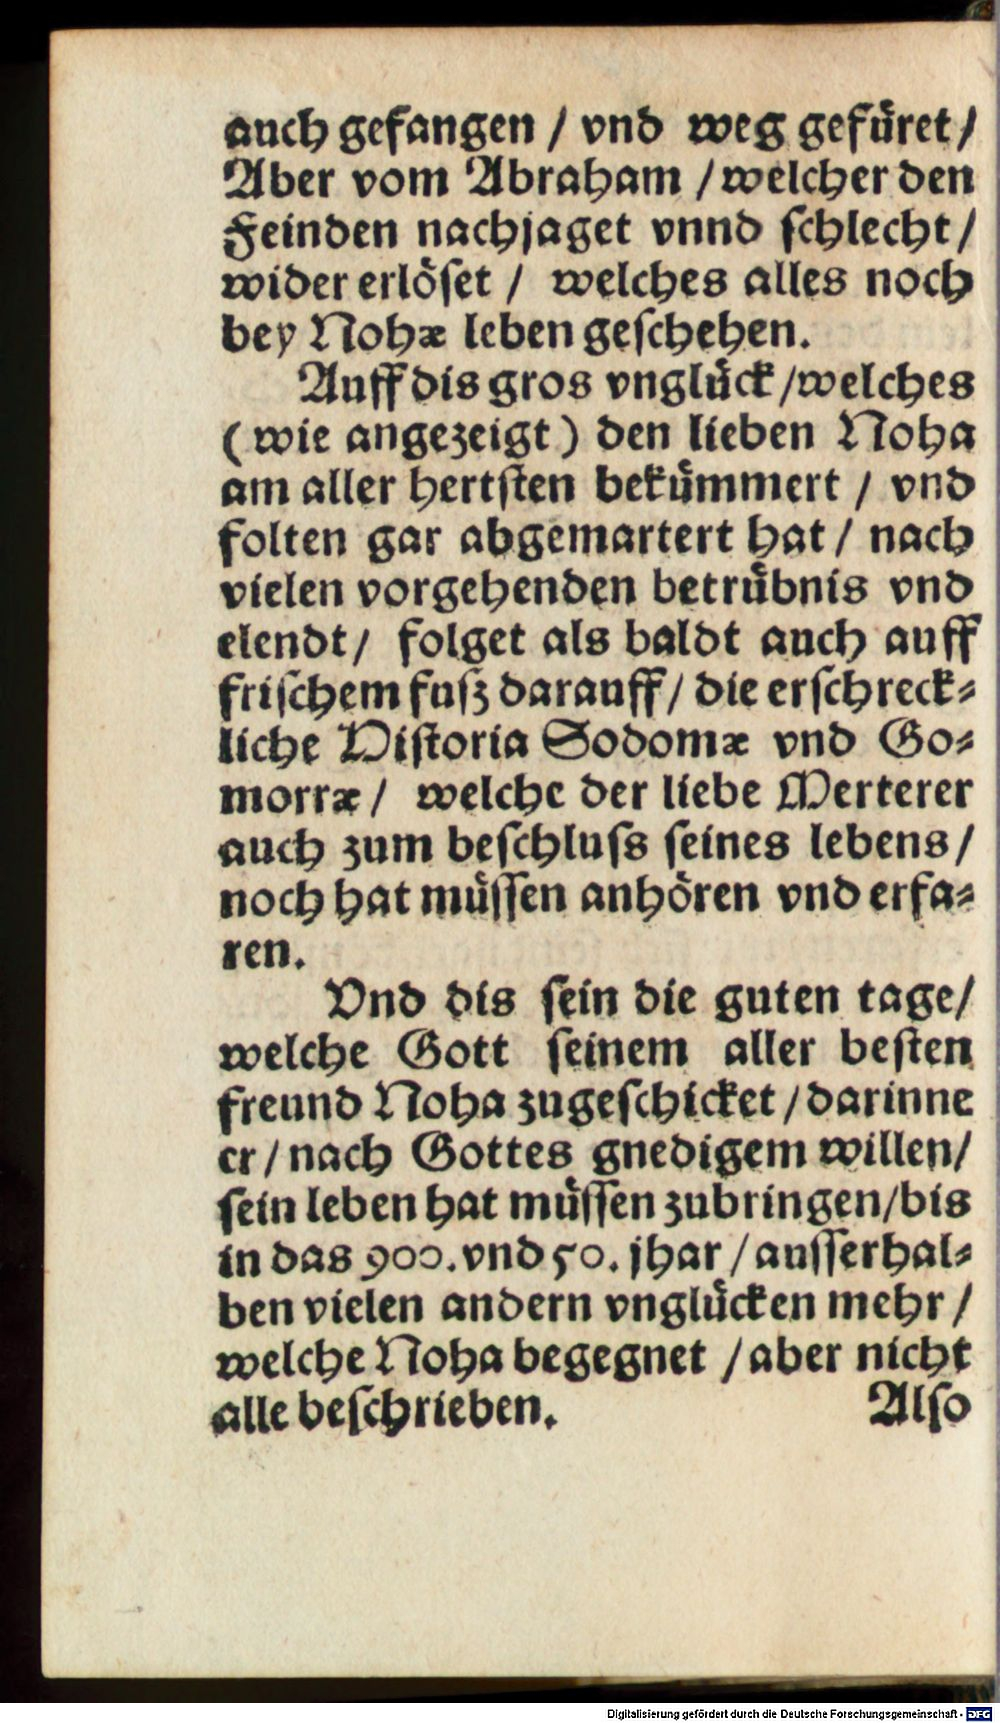 auch gefangen / vnd weg gefüret /
Aber vom Abraham / welcher den
Feinden nachjaget vnnd ſchlecht /
wider erlöſet / welches alles noch
bey Nohæ leben geſchehen.
Auff dis gros vnglück / welches
( wie angezeigt ) den lieben Noha
am aller hertſten bekümmert / vnd
folten gar abgemartert hat / nach
vielen vorgehenden betrübnis vnd
elendt / folget als baldt auch auff
friſchem fuſz darauff / die erſchreck⸗
liche Hiſtoria Sodomæ vnd Go⸗
morræ / welche der liebe Merterer
auch zum beſchluſs ſeines lebens /
noch hat müſſen anhören vnd erfa⸗
ren.
Vnd dis ſein die guten tage /
welche Gott ſeinem aller beſten
freund Noha zugeſchicket / darinne
er / nach Gottes gnedigem willen /
ſein leben hat müſſen zubringen / bis
in das 900. vnd 50. jhar / auſſerhal⸗
ben vielen andern vnglücken mehr /
welche Noha begegnet / aber nicht
alle beſchrieben. Alſo
Digitalisierung gefördert durch die Deutsche Forschungsgemeinschaft - DFG